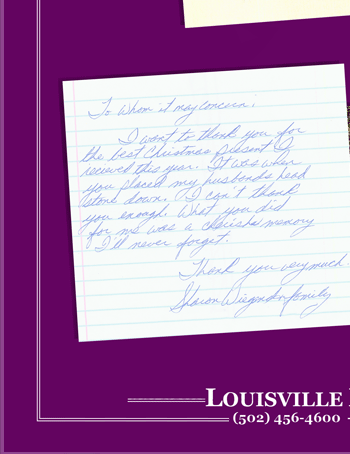 To Whom it may concern;
I want to thank you for
the best Christmas present I
received this year. It was when
you placed my husbands head
stone down. I can't thank
you enough. What you did
for me was a cherishe memory
I'll never forget.
Thank you very much
Sharon
LOUISVILLE
(502) 456-4600